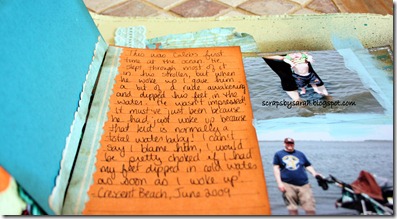 This was Calvin's first
time at the ocean. He
slept through most of it
in his stroller, but when
he woke up I gave him
a bit of a rude awakening
and dipped his feet in the
water. He wasn't impressed.
It must've just been because
he had just woke up because
that kid is normally a
total water baby! I can't
say I blame him, I would
be pretty choked if I had
my feet dipped in cold water
as soon as I woke up!
Crescent Beach, June 2009
scrapsbysarah.blogspot.com